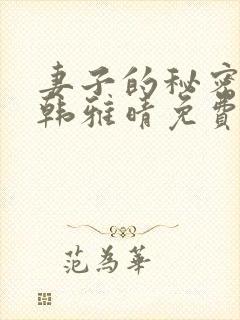 妻子的秘密
韩雅晴免費
范為華